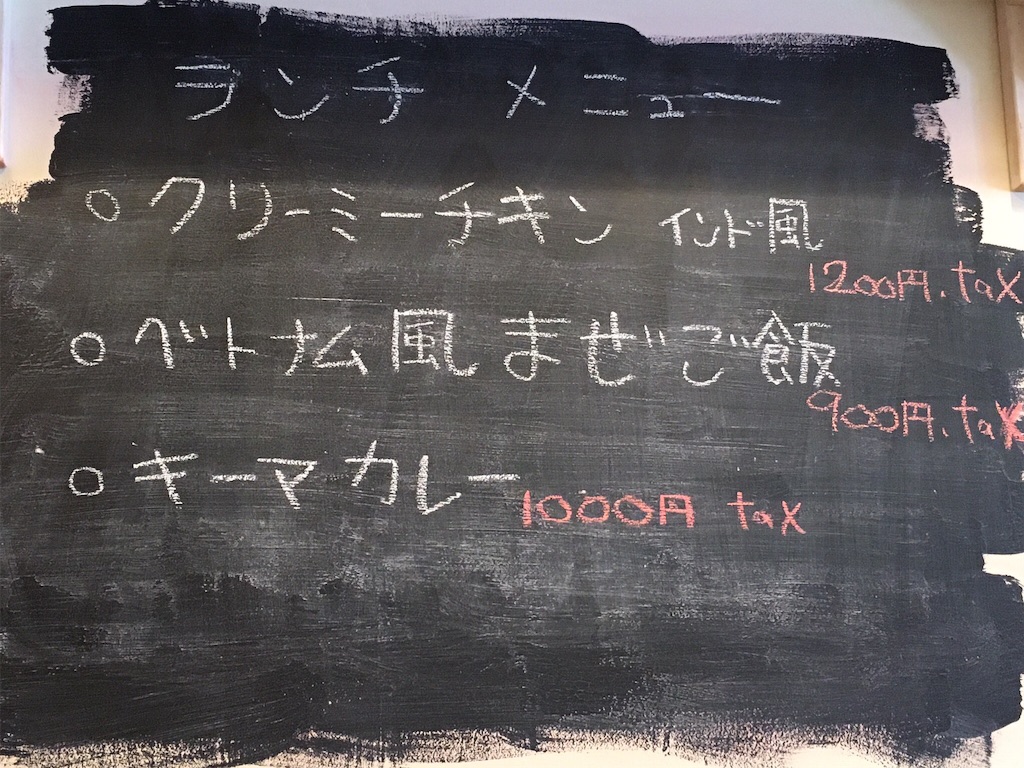 ランチ メニュー
○クリーミーチキン インド風
1200円.tax
○ベトナム風まぜご飯
900円.tax
○キーマカレー 1000円 tax